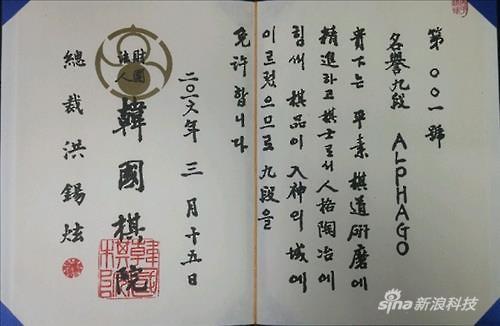 第〇〇一號
名譽九段 ALPHAGO
貴下는 平素 棋道硏磨에
精進하고 棋士로서 人格陶冶에
힘써 棋品이 入神의 域에
이르렀으므로 九段을
免許합니다
二〇一六年 三月 十五日
財團法人 韓國棋院
總裁 洪錫炫
sina新浪科技